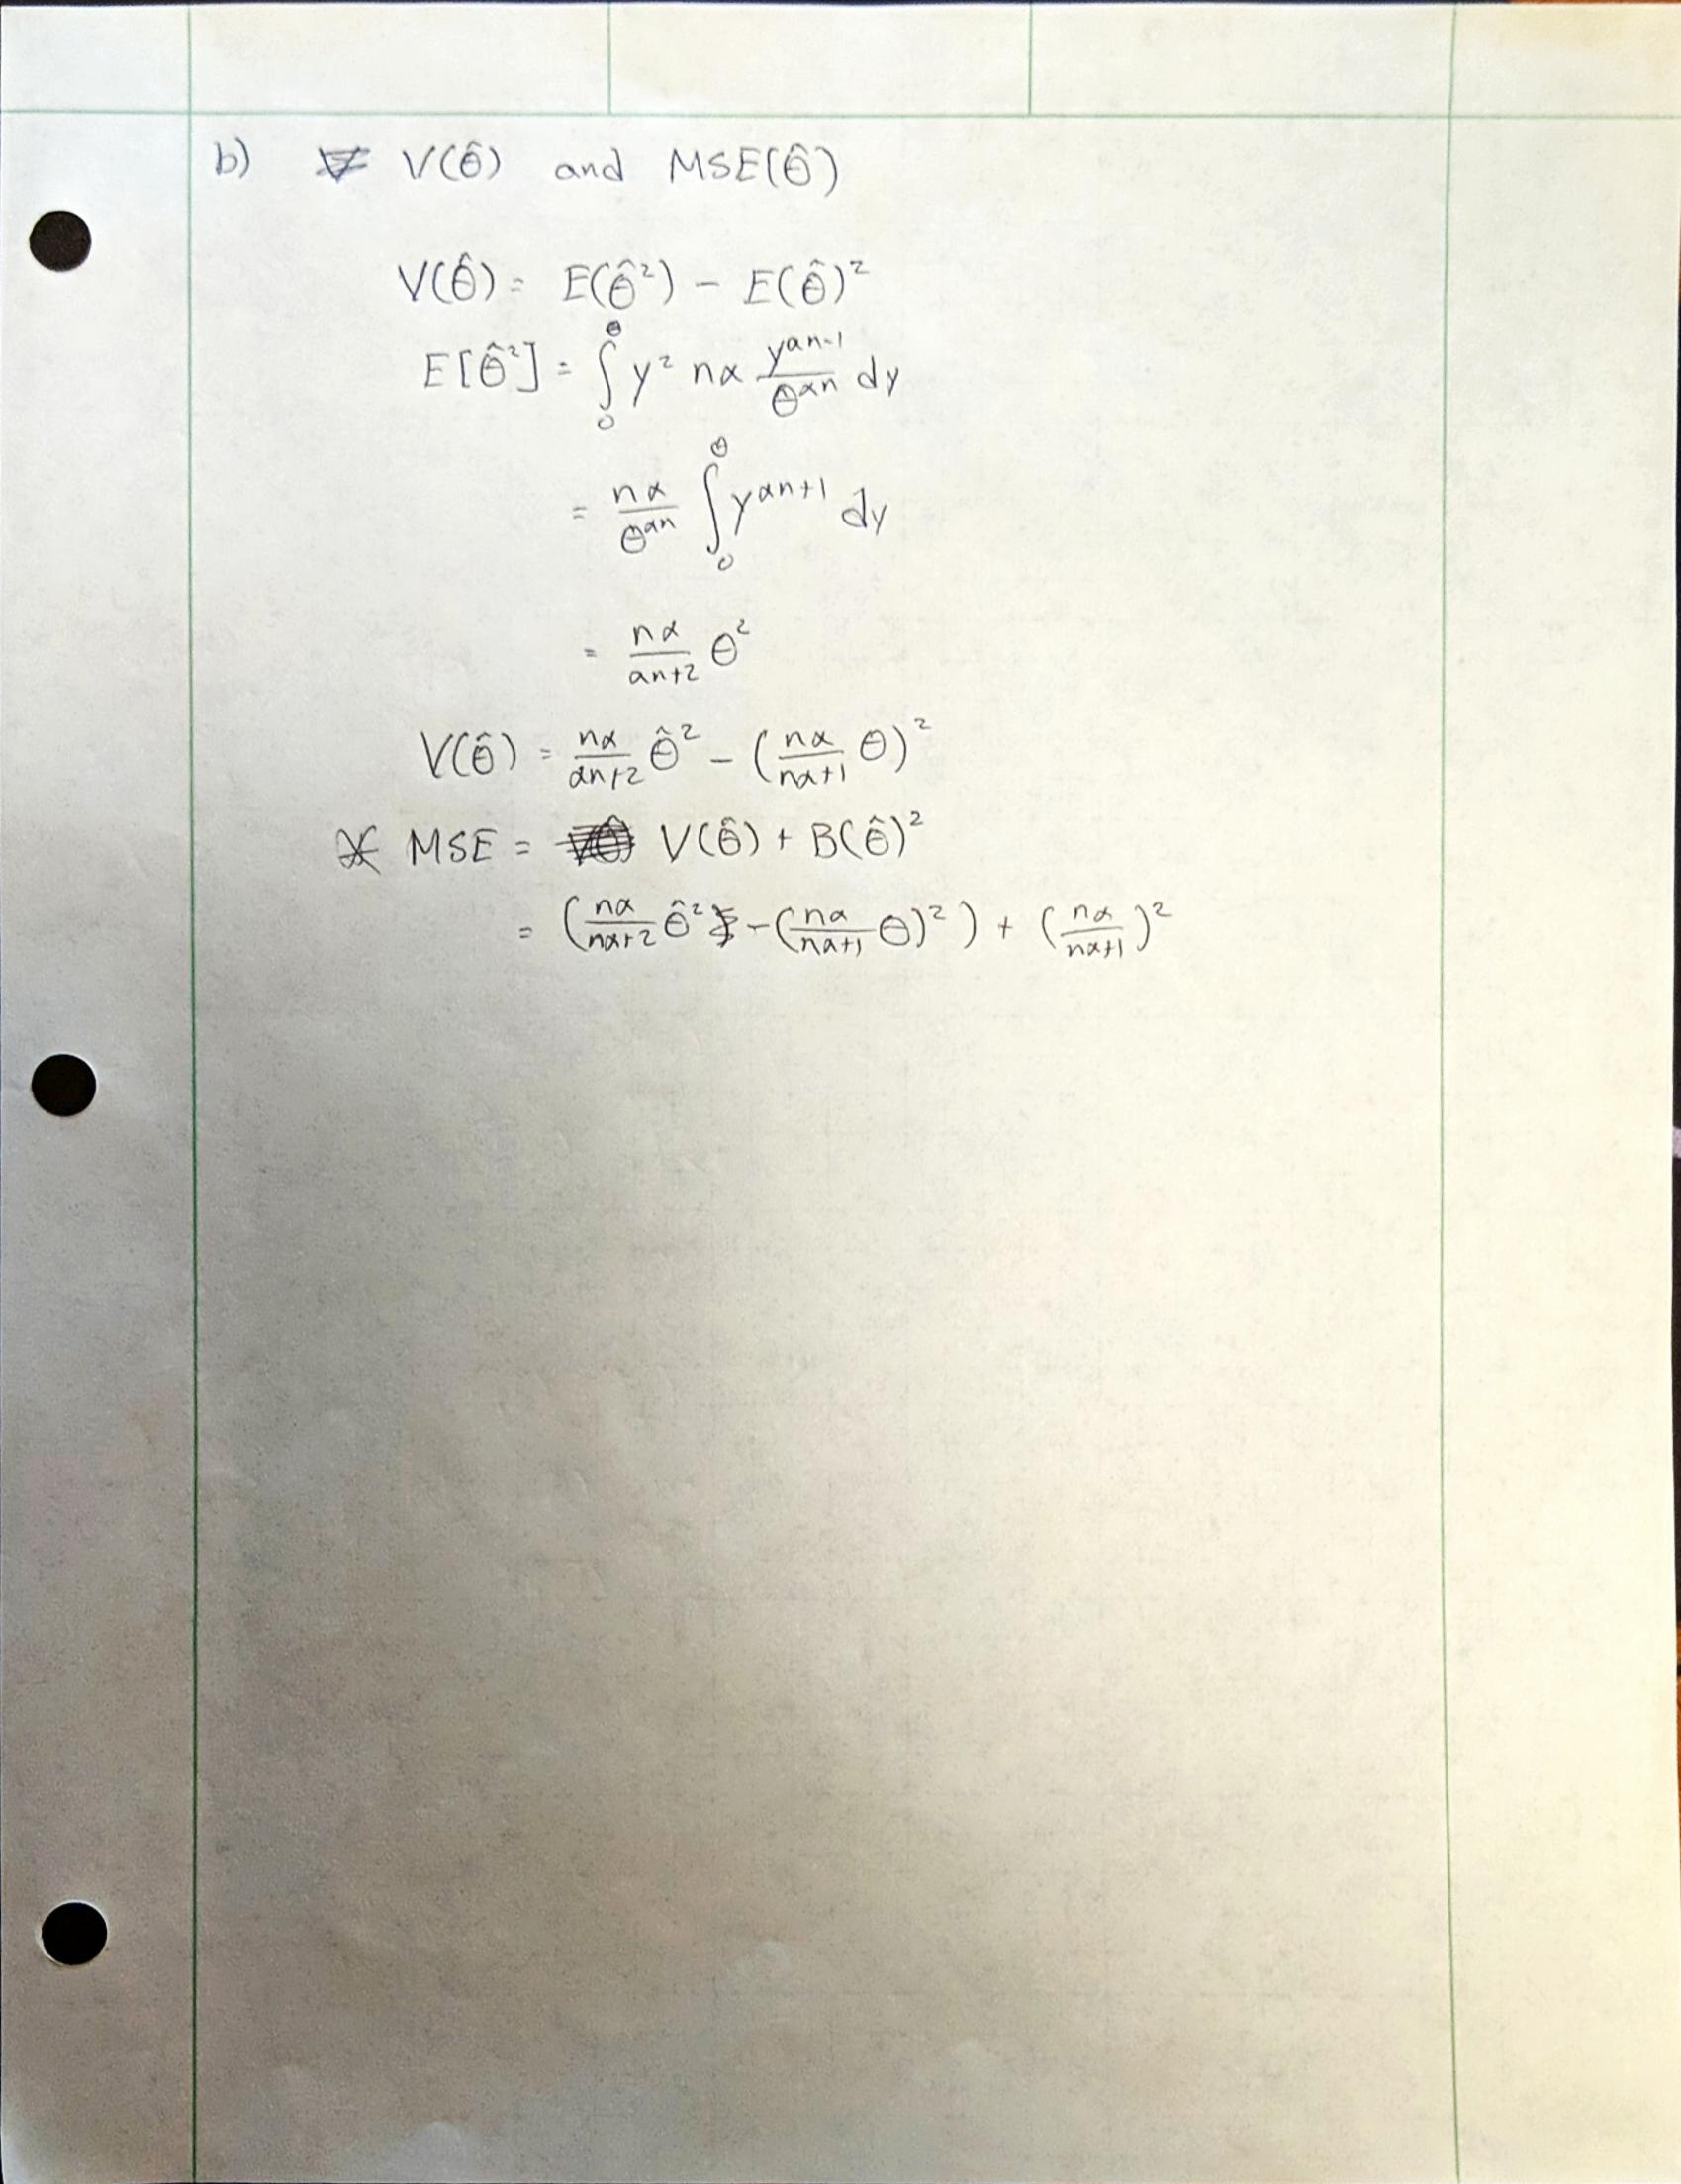 b) V(θ̂) and MSE(θ̂)
V(θ̂) = E(θ̂²) - E(θ̂)²
E[θ̂²] = ∫₀^θ y² nα y^(αn-1)/θ^(αn) dy
= nα/θ^(αn) ∫₀^θ y^(αn+1) dy
= nα/(αn+2) θ²
V(θ̂) = nα/(αn+2) θ̂² - (nα/(nα+1) θ)²
* MSE = V(θ̂) + B(θ̂)²
= (nα/(nα+2) θ̂² - (nα/(nα+1) θ)²) + (nα/(nα+1))²